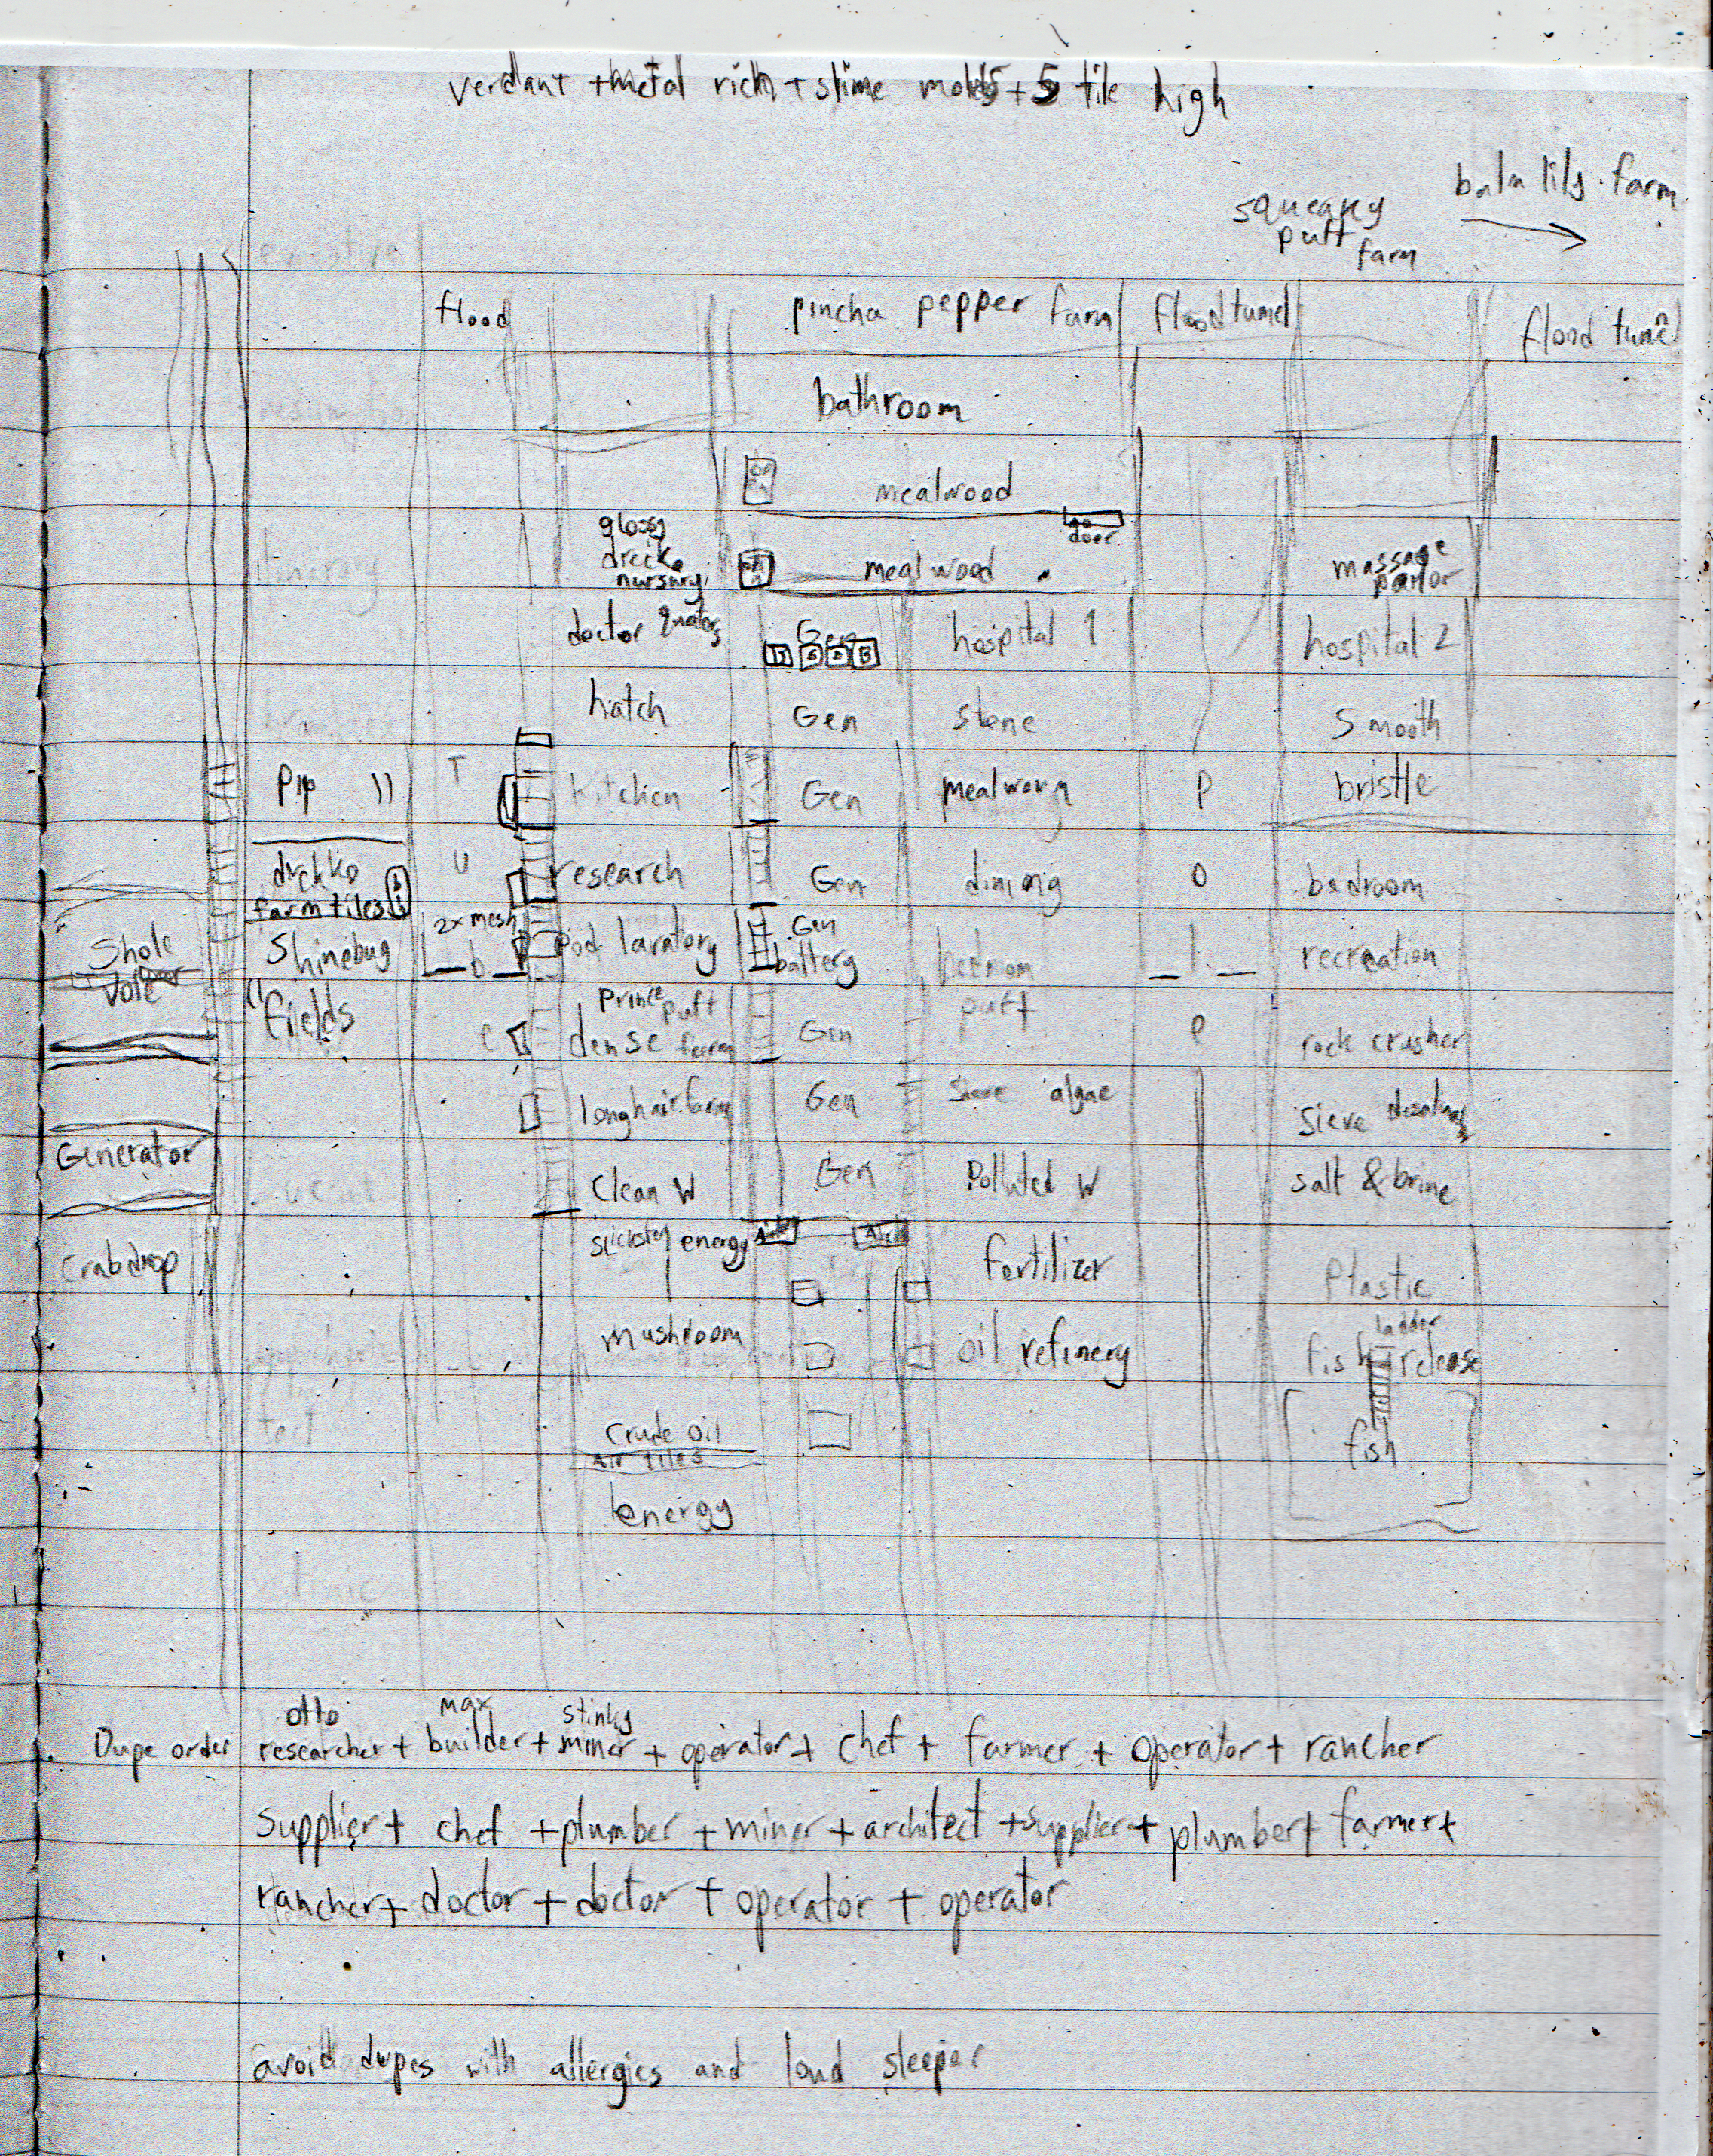 verdant + metal rich + slime molds + 5 tile high
balm lily farm
squeaky
puft
farm
flood
pincha pepper farm
flood tunel
flood tune
bathroom
mealwood
glossy
drecko
nursury
door
mealwood
massage
parlor
doctor
Gen
hospital 1
hospital 2
hatch
Gen
Smooth
Pip
T
kitchen
Gen
mealworm
P
bristle
drekko
farm tiles
U
research
Gen
dining
O
bedroom
Shole
vole
Shinebug
2x mesh
b
Pod lavatory
Gen
battery
bedroom
I
recreation
fields
e
Prince puft
dense farm
Gen
puft
e
rock crusher
longhair farm
Gen
algae
Sieve
Generator
Clean W
Gen
Polluted W
salt & brine
Crabdrop
slickster energy
fertilizer
Plastic
mushroom
oil refinery
ladder
fish release
crude oil
air tiles
fish
energy
otto
max
stinky
Dupe order
researcher + builder + miner + operator + chef + farmer + operator + rancher
supplier + chef + plumber + miner + architect + supplier + plumber + farmer +
rancher + doctor + doctor + operator + operator
avoid dupes with allergies and loud sleeper